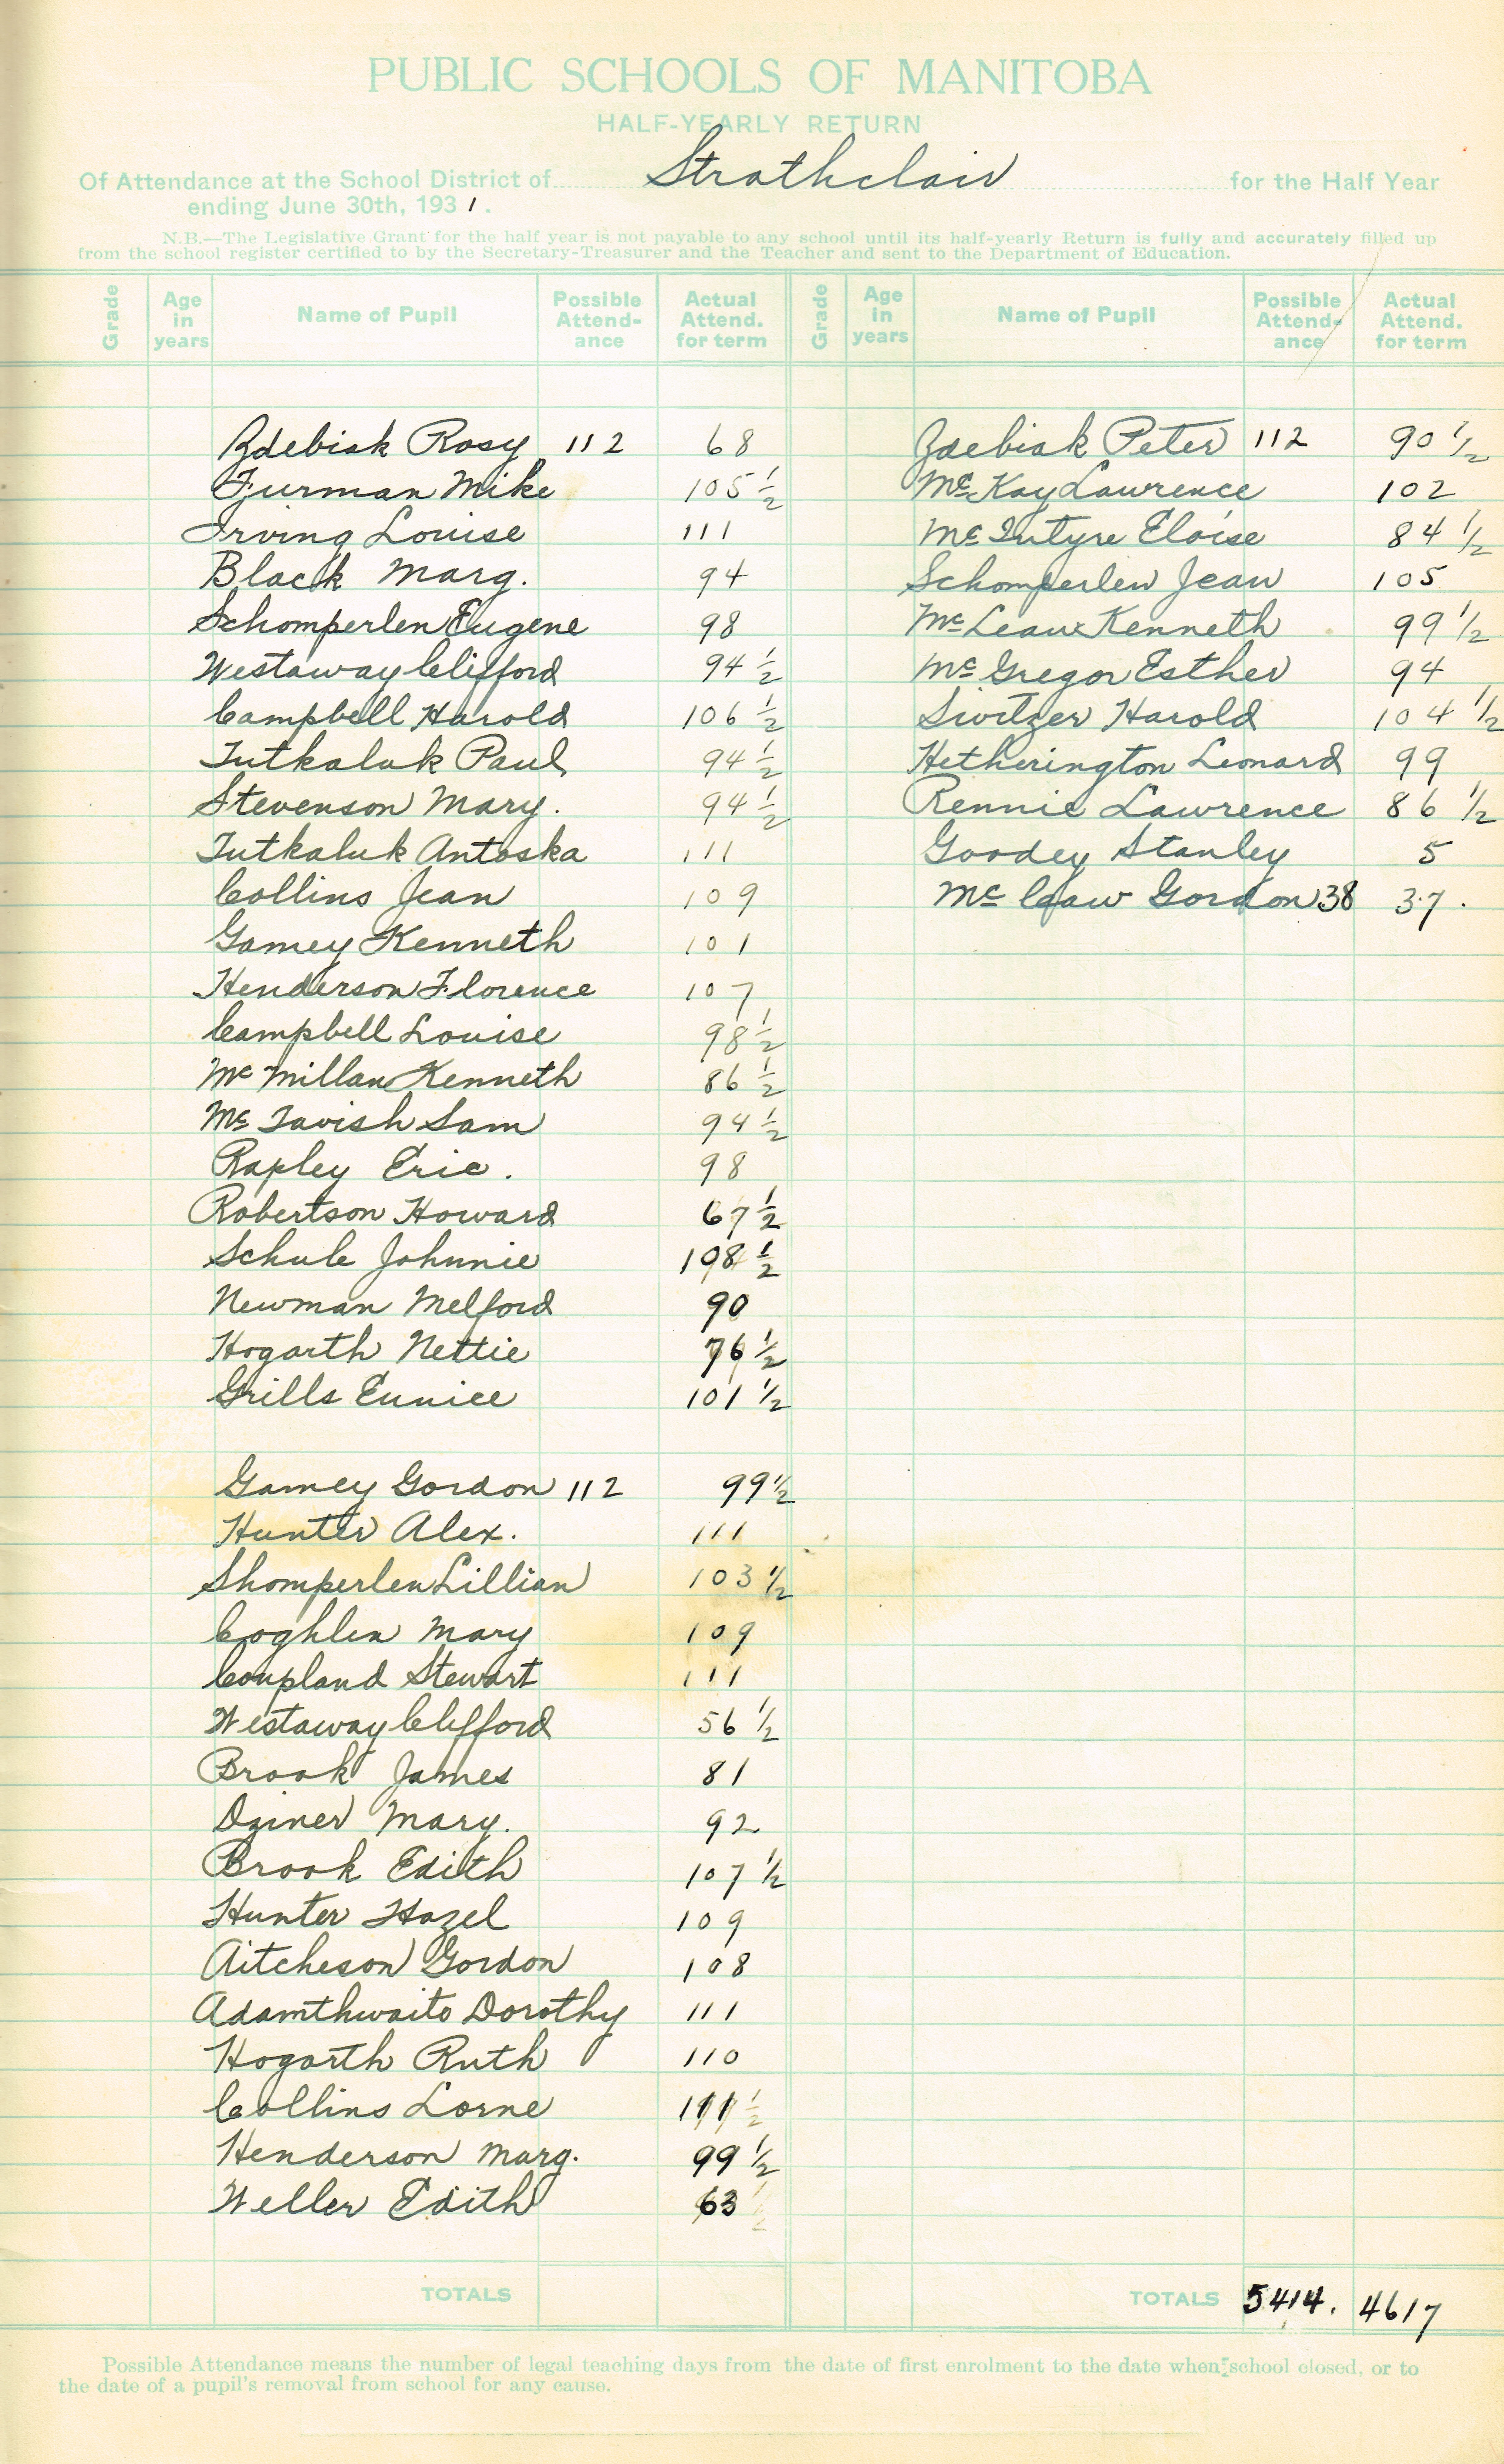 PUBLIC SCHOOLS OF MANITOBA
HALF-YEARLY RETURN
Of Attendance at the School District of Strathclair for the Half Year
ending June 30th, 1931.
N.B.—The Legislative Grant for the half year is not payable to any school until its half-yearly Return is fully and accurately filled up
from the school register certified to by the Secretary-Treasurer and the Teacher and sent to the Department of Education.
Grade Age in years Name of Pupil Possible Attend-ance Actual Attend. for term Grade Age in years Name of Pupil Possible Attend-ance Actual Attend. for term
Zdebiak Rosy 112 68
Furman Mike 105 1/2
Irving Louise 111
Black Marg. 94
Schomperlen Eugene 98
Westaway Clifford 94 1/2
Campbell Harold 106 1/2
Tutkaluk Paul 94 1/2
Stevenson Mary. 94 1/2
Tutkaluk Antoska 111
Collins Jean 109
Gamey Kenneth 101
Henderson Florence 107
Campbell Louise 98 1/2
Mc Millan Kenneth 86 1/2
Mc Tavish Sam 94 1/2
Rapley Eric. 98
Robertson Howard 67 1/2
Schule Johnnie 108 1/2
Newman Melford 90
Hogarth Nettie 76 1/2
Grills Eunice 101 1/2
Gamey Gordon 112 99 1/2
Hunter Alex. 111
Shomperlen Lillian 103 1/2
Coghlen Mary 109
Coupland Stewart 111
Westaway Clifford 56 1/2
Brook James 81
Dziner Mary. 92
Brook Edith 107 1/2
Hunter Hazel 109
Aitcheson Gordon 108
Adamthwaite Dorothy 111
Hogarth Ruth 110
Collins Lorne 111 1/2
Henderson Marg. 99 1/2
Weller Edith 63
TOTALS
Zdebiak Peter 112 90 1/2
Mc Kay Lawrence 102
Mc Intyre Eloise 84 1/2
Schomperlen Jean 105
Mc Lean Kenneth 99 1/2
Mc Gregor Esther 94
Switzer Harold 104 1/2
Hetherington Leonard 99
Rennie Lawrence 86 1/2
Goodey Stanley 5
Mc Caw Gordon 38 37.
TOTALS 5414. 4617
Possible Attendance means the number of legal teaching days from the date of first enrolment to the date when school closed, or to
the date of a pupil's removal from school for any cause.